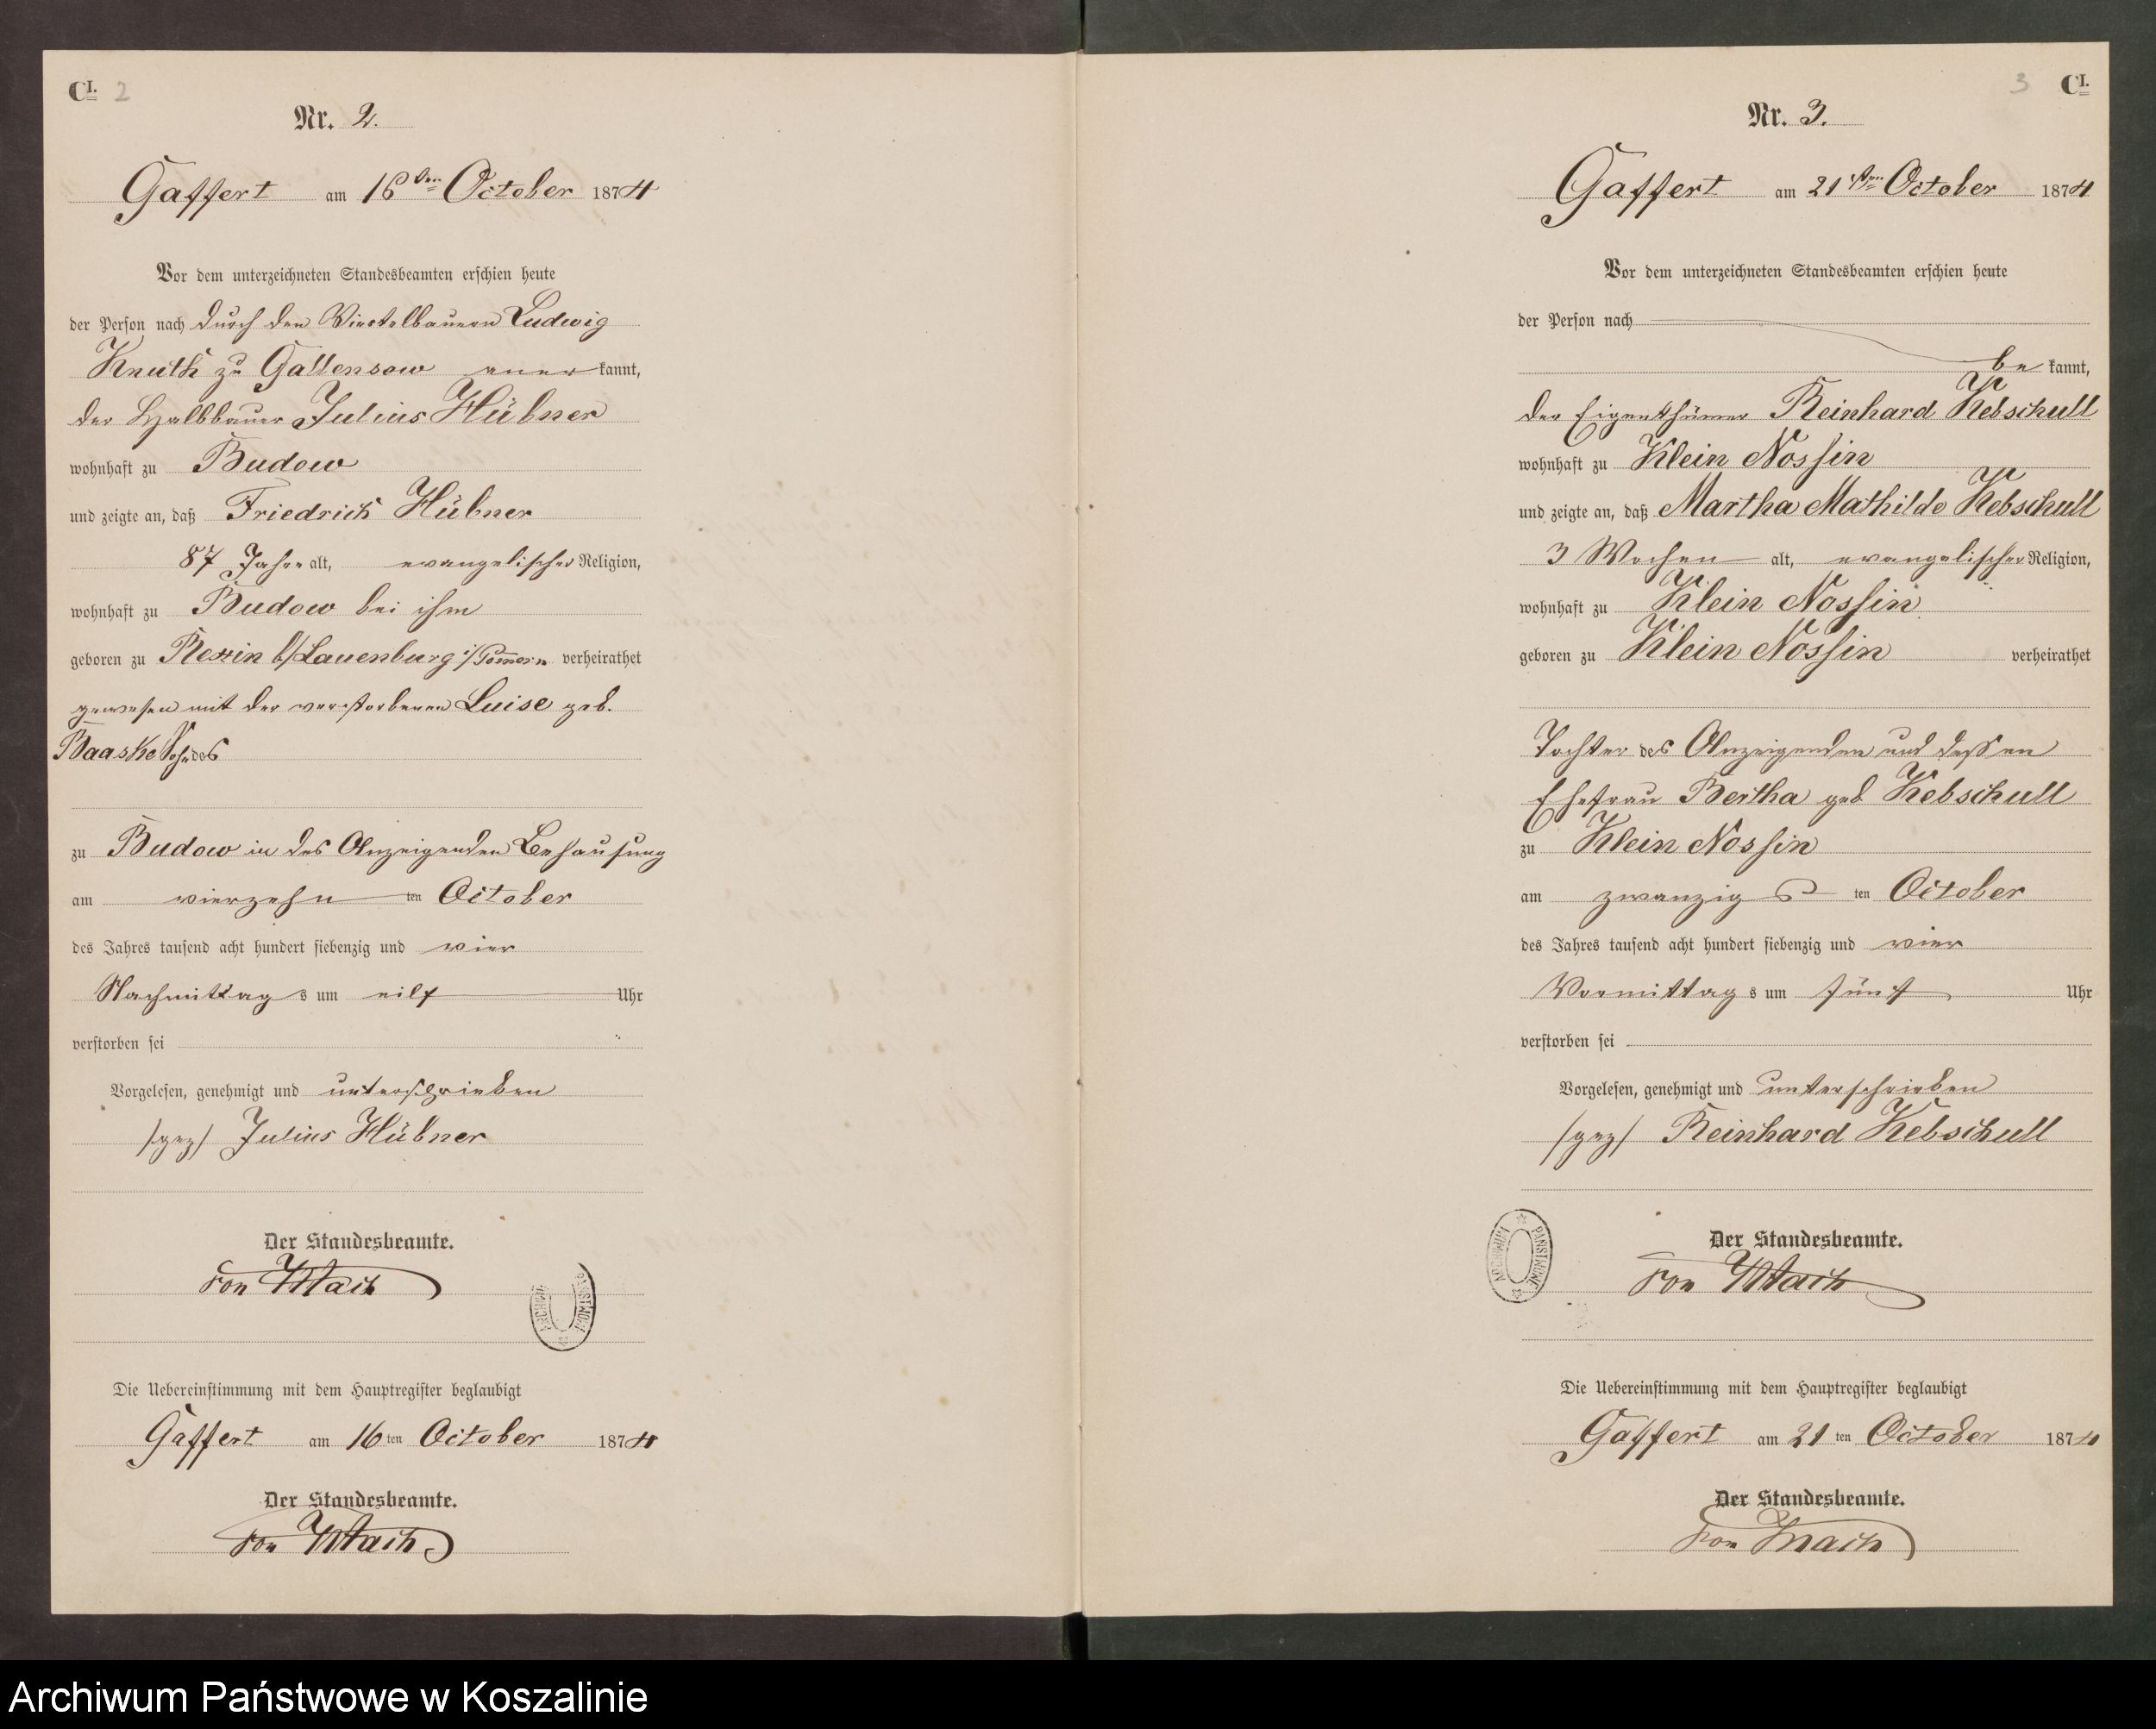 C I. 2
Nr. 2.
Gaffert am 16ten October 1874
Vor dem unterzeichneten Standesbeamten erschien heute
der Person nach durch den Viertelbauern Ludwig
Knuth zu Gallensow aner kannt,
der Halbbauer Julius Hübner
wohnhaft zu Budow
und zeigte an, daß Friedrich Hübner
87 Jahre alt, evangelischer Religion,
wohnhaft zu Budow bei ihm
geboren zu Rexin b/Lauenburg i/Pommern verheirathet
gewesen mit der verstorbenen Luise geb.
Baaske Sohn des
zu Budow in des Anzeigenden Behausung
am vierzehn ten October
des Jahres tausend acht hundert siebenzig und vier
Nachmittag s um eilf Uhr
verstorben sei
Vorgelesen, genehmigt und unterschrieben
/gez/ Julius Hübner
Der Standesbeamte.
von Mach
ARCHIWUM PAŃSTWOWE
Die Uebereinstimmung mit dem Hauptregister beglaubigt
Gaffert am 16 ten October 1874
Der Standesbeamte.
von Mach
3 C I.
Nr. 3.
Gaffert am 21ten October 1874
Vor dem unterzeichneten Standesbeamten erschien heute
der Person nach
be kannt,
der Eigenthümer Reinhard Kebschull
wohnhaft zu Klein Nossin
und zeigte an, daß Martha Mathilde Kebschull
3 Wochen alt, evangelischer Religion,
wohnhaft zu Klein Nossin
geboren zu Klein Nossin verheirathet
Tochter des Anzeigenden und dessen
Ehefrau Bertha geb Kebschull
zu Klein Nossin
am zwanzigs ten October
des Jahres tausend acht hundert siebenzig und vier
Vormittag s um fünf Uhr
verstorben sei
Vorgelesen, genehmigt und unterschrieben
/gez/ Reinhard Kebschull
ARCHIWUM PAŃSTWOWE
Der Standesbeamte.
von Mach
Die Uebereinstimmung mit dem Hauptregister beglaubigt
Gaffert am 21 ten October 1874
Der Standesbeamte.
von Mach
Archiwum Państwowe w Koszalinie